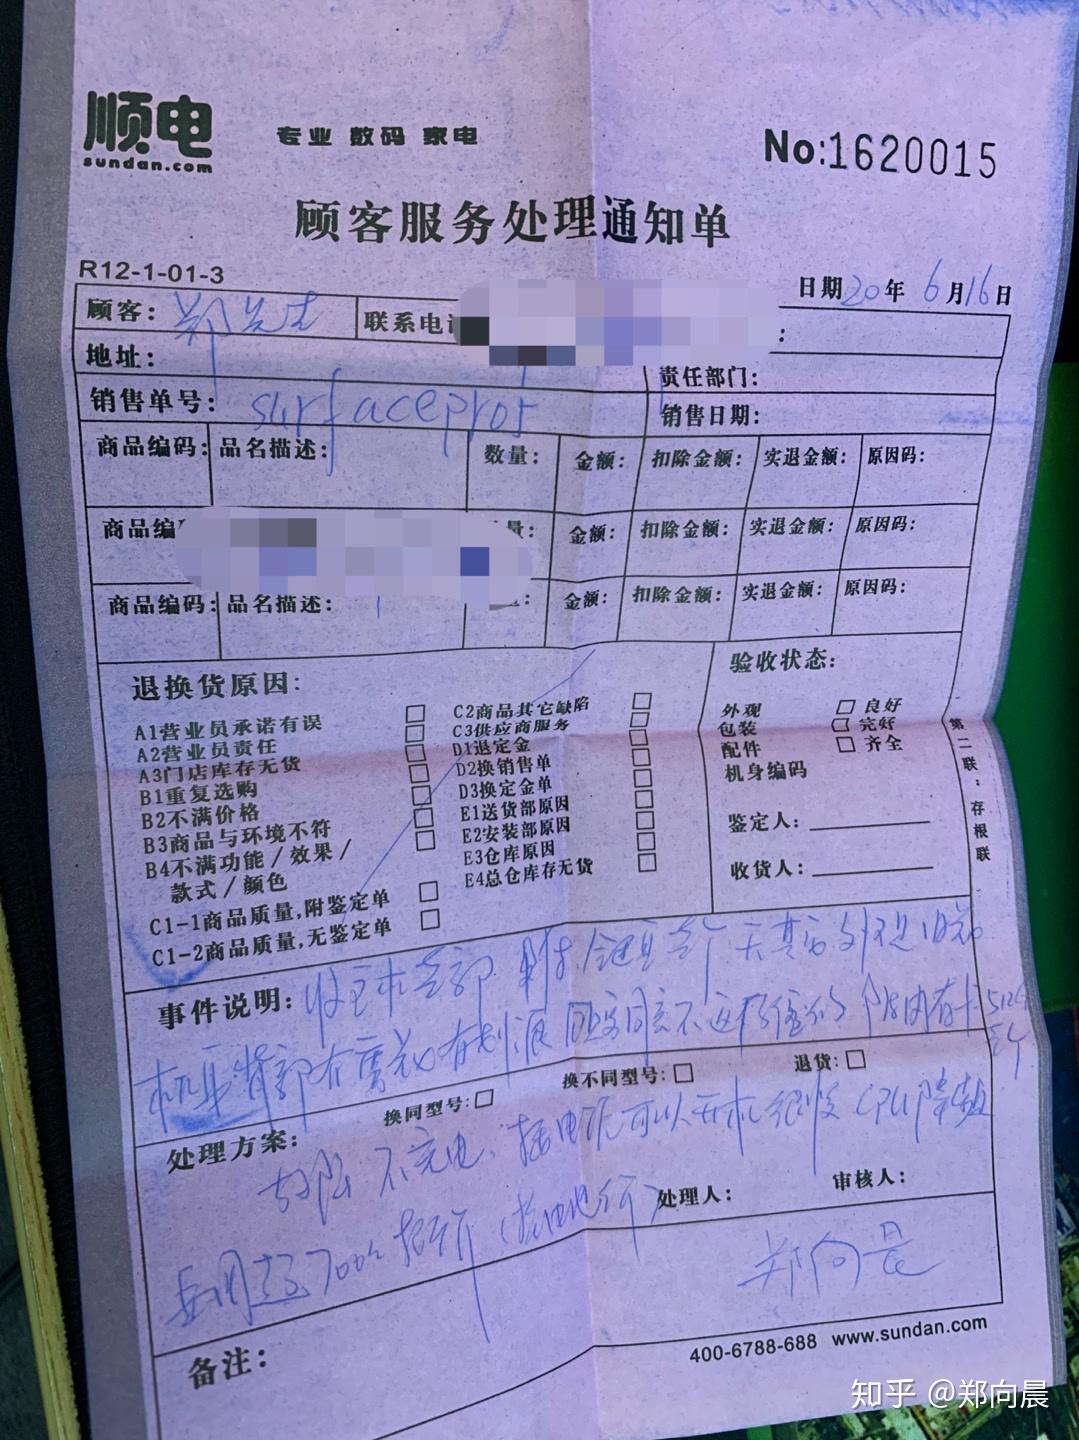 顺电
sundan.com
专业 数码 家电
No:1620015
顾客服务处理通知单
R12-1-01-3
日期20年6月16日
顾客：郑先生
联系电
地址：
责任部门：
销售单号：surfacepro5
销售日期：
商品编码：品名描述：数量：金额：扣除金额：实退金额：原因码：
商品编 金额：扣除金额：实退金额：原因码：
商品编码：品名描述：金额：扣除金额：实退金额：原因码：
退换货原因：
A1营业员承诺有误
A2营业员责任
A3门店库存无货
B1重复选购
B2不满价格
B3商品与环境不符
B4不满功能/效果/
款式/颜色
C1-1商品质量,附鉴定单
C1-2商品质量,无鉴定单
C2商品其它缺陷
C3供应商服务
D1退定金
D2换销售单
D3换定金单
E1送货部原因
E2安装部原因
E3仓库原因
E4总仓库存无货
验收状态：
外观 良好
包装 完好
配件 齐全
机身编码
鉴定人：
收货人：
第二联：存根联
事件说明：
背部有 有划痕
换同型号： 换不同型号： 退货：
处理方案：
故障 不充电 可以开机 CPU降频
处理人： 审核人：
700
郑向晨
备注：
400-6788-688 www.sundan.com
知乎 @郑向晨